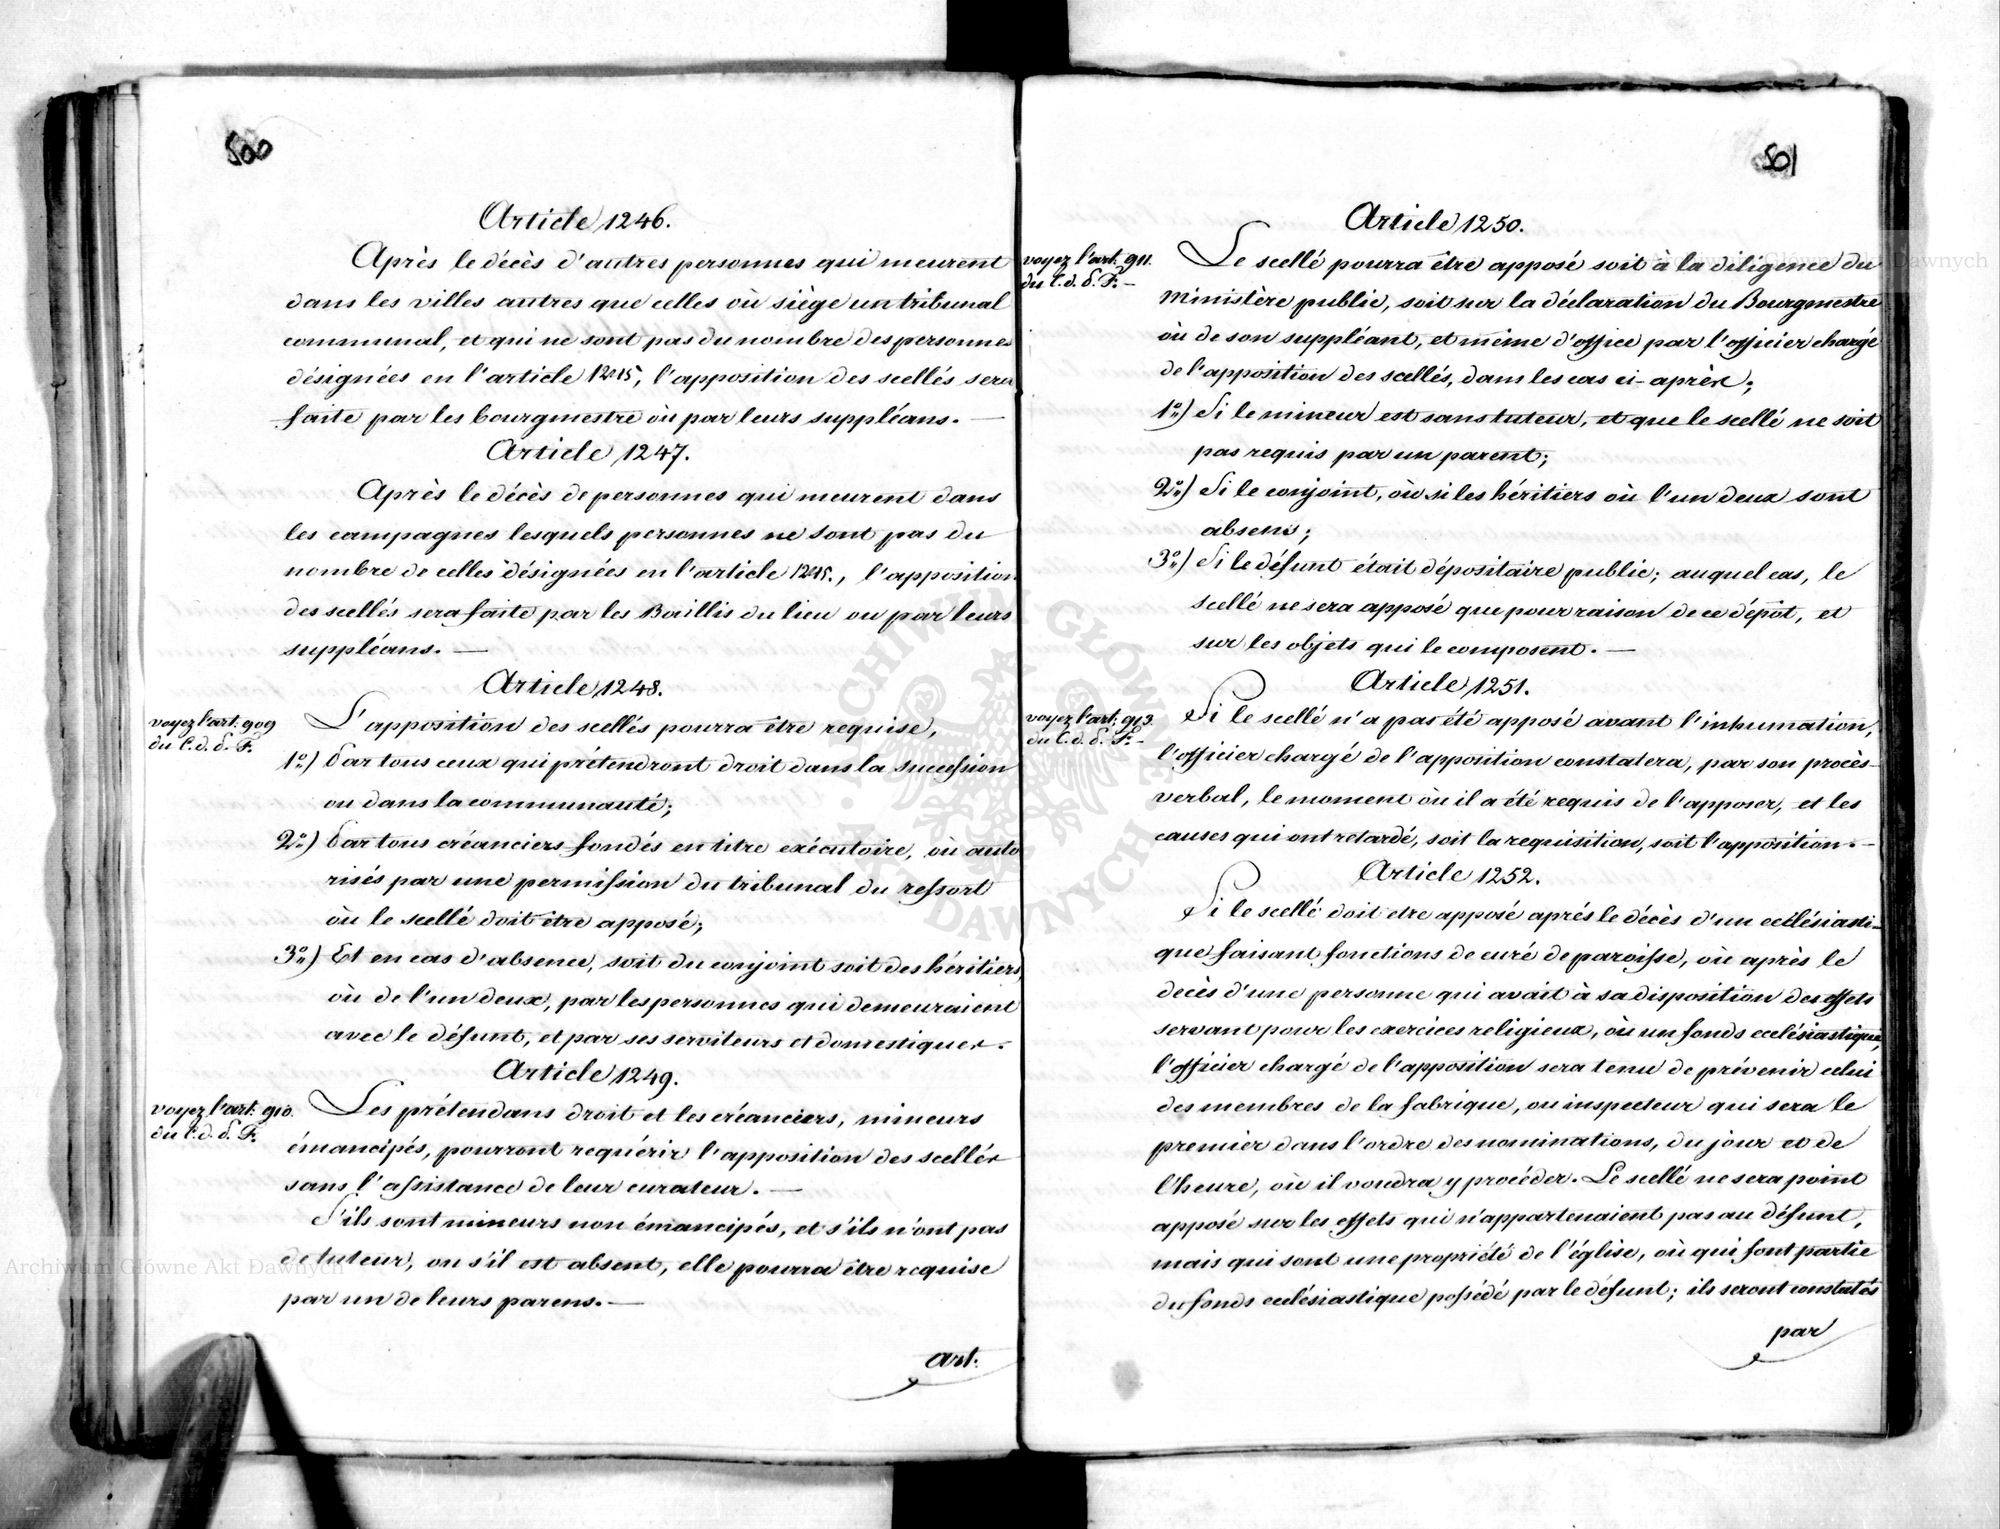 500
Article 1246.
Après le décès d'autres personnes qui meurent
dans les villes autres que celles où siège un tribunal
communal, et qui ne sont pas du nombre des personnes
désignées en l'article 1245, l'apposition des scellés sera
faite par les bourgmestre où par leurs suppléans. —
Article 1247.
Après le décès de personnes qui meurent dans
les campagnes lesquels personnes ne sont pas du
nombre de celles désignées en l'article 1245., l'apposition
des scellés sera faite par les Baillis du lieu ou par leurs
suppléans. —
Article 1248.
voyez l'art. 909
du C. d. d. F.
L'apposition des scellés pourra être requise,
1º) Par tous ceux qui prétendront droit dans la succession
ou dans la communauté;
2º) Par tous créanciers fondés en titre exécutoire, où auto
risés par une permission du tribunal du ressort
où le scellé doit être apposé;
3º) Et en cas d'absence, soit du conjoint soit des héritiers,
où de l'un deux, par les personnes qui demeuraient
avec le défunt, et par ses serviteurs et domestiques.
Article 1249.
voyez l'art. 910.
du C. d. d. F.
Les prétendans droit et les créanciers, mineurs
émancipés, pourront requérir l'apposition des scellés
sans l'assistance de leur curateur. —
S'ils sont mineurs non émancipés, et s'ils n'ont pas
de tuteur, ou s'il est absent, elle pourra être requise
par un de leurs parens. —
Art:
501
Article 1250.
voyez l'art. 911.
du C. d. d. F. —
Le scellé pourra être apposé soit à la diligence du
ministère public, soit sur la déclaration du Bourgmestre
où de son suppléant, et même d'office par l'officier chargé
de l'apposition des scellés, dans les cas ci-après;
1º) Si le mineur est sans tuteur, et que le scellé ne soit
pas requis par un parent;
2º) Si le conjoint, où si les héritiers où l'un deux sont
absens;
3º) Si le défunt était dépositaire public; auquel cas, le
scellé ne sera apposé que pour raison de ce dépôt, et
sur les objets qui le composent. —
Article 1251.
voyez l'art. 913.
du C. d. d. F. —
Si le scellé n'a pas été apposé avant l'inhumation,
l'officier chargé de l'apposition constatera, par son procès-
verbal, le moment où il a été requis de l'apposer, et les
causes qui ont retardé, soit la requisition, soit l'apposition. —
Article 1252.
Si le scellé doit etre apposé aprés le décès d'un ecclésiasti-
que faisant fonctions de curé de paroisse, où après le
decès d'une personne qui avait à sa disposition des effets
servant pour les exercices religieux, où un fonds ecclésiastique,
l'officier chargé de l'apposition sera tenu de prévenir celui
des membres de la fabrique, ou inspecteur qui sera le
premier dans l'ordre des nominations, du jour et de
l'heure, où il voudra y procéder. Le scellé ne sera point
apposé sur les effets qui n'appartenaient pas au défunt,
mais qui sont une propriété de l'église, où qui font partie
du fonds ecclésiastique possédé par le défunt; ils seront constatés
par
Archiwum Główne Akt Dawnych
Archiwum Główne Akt Dawnych
ARCHIWUM GŁÓWNE AKT DAWNYCH